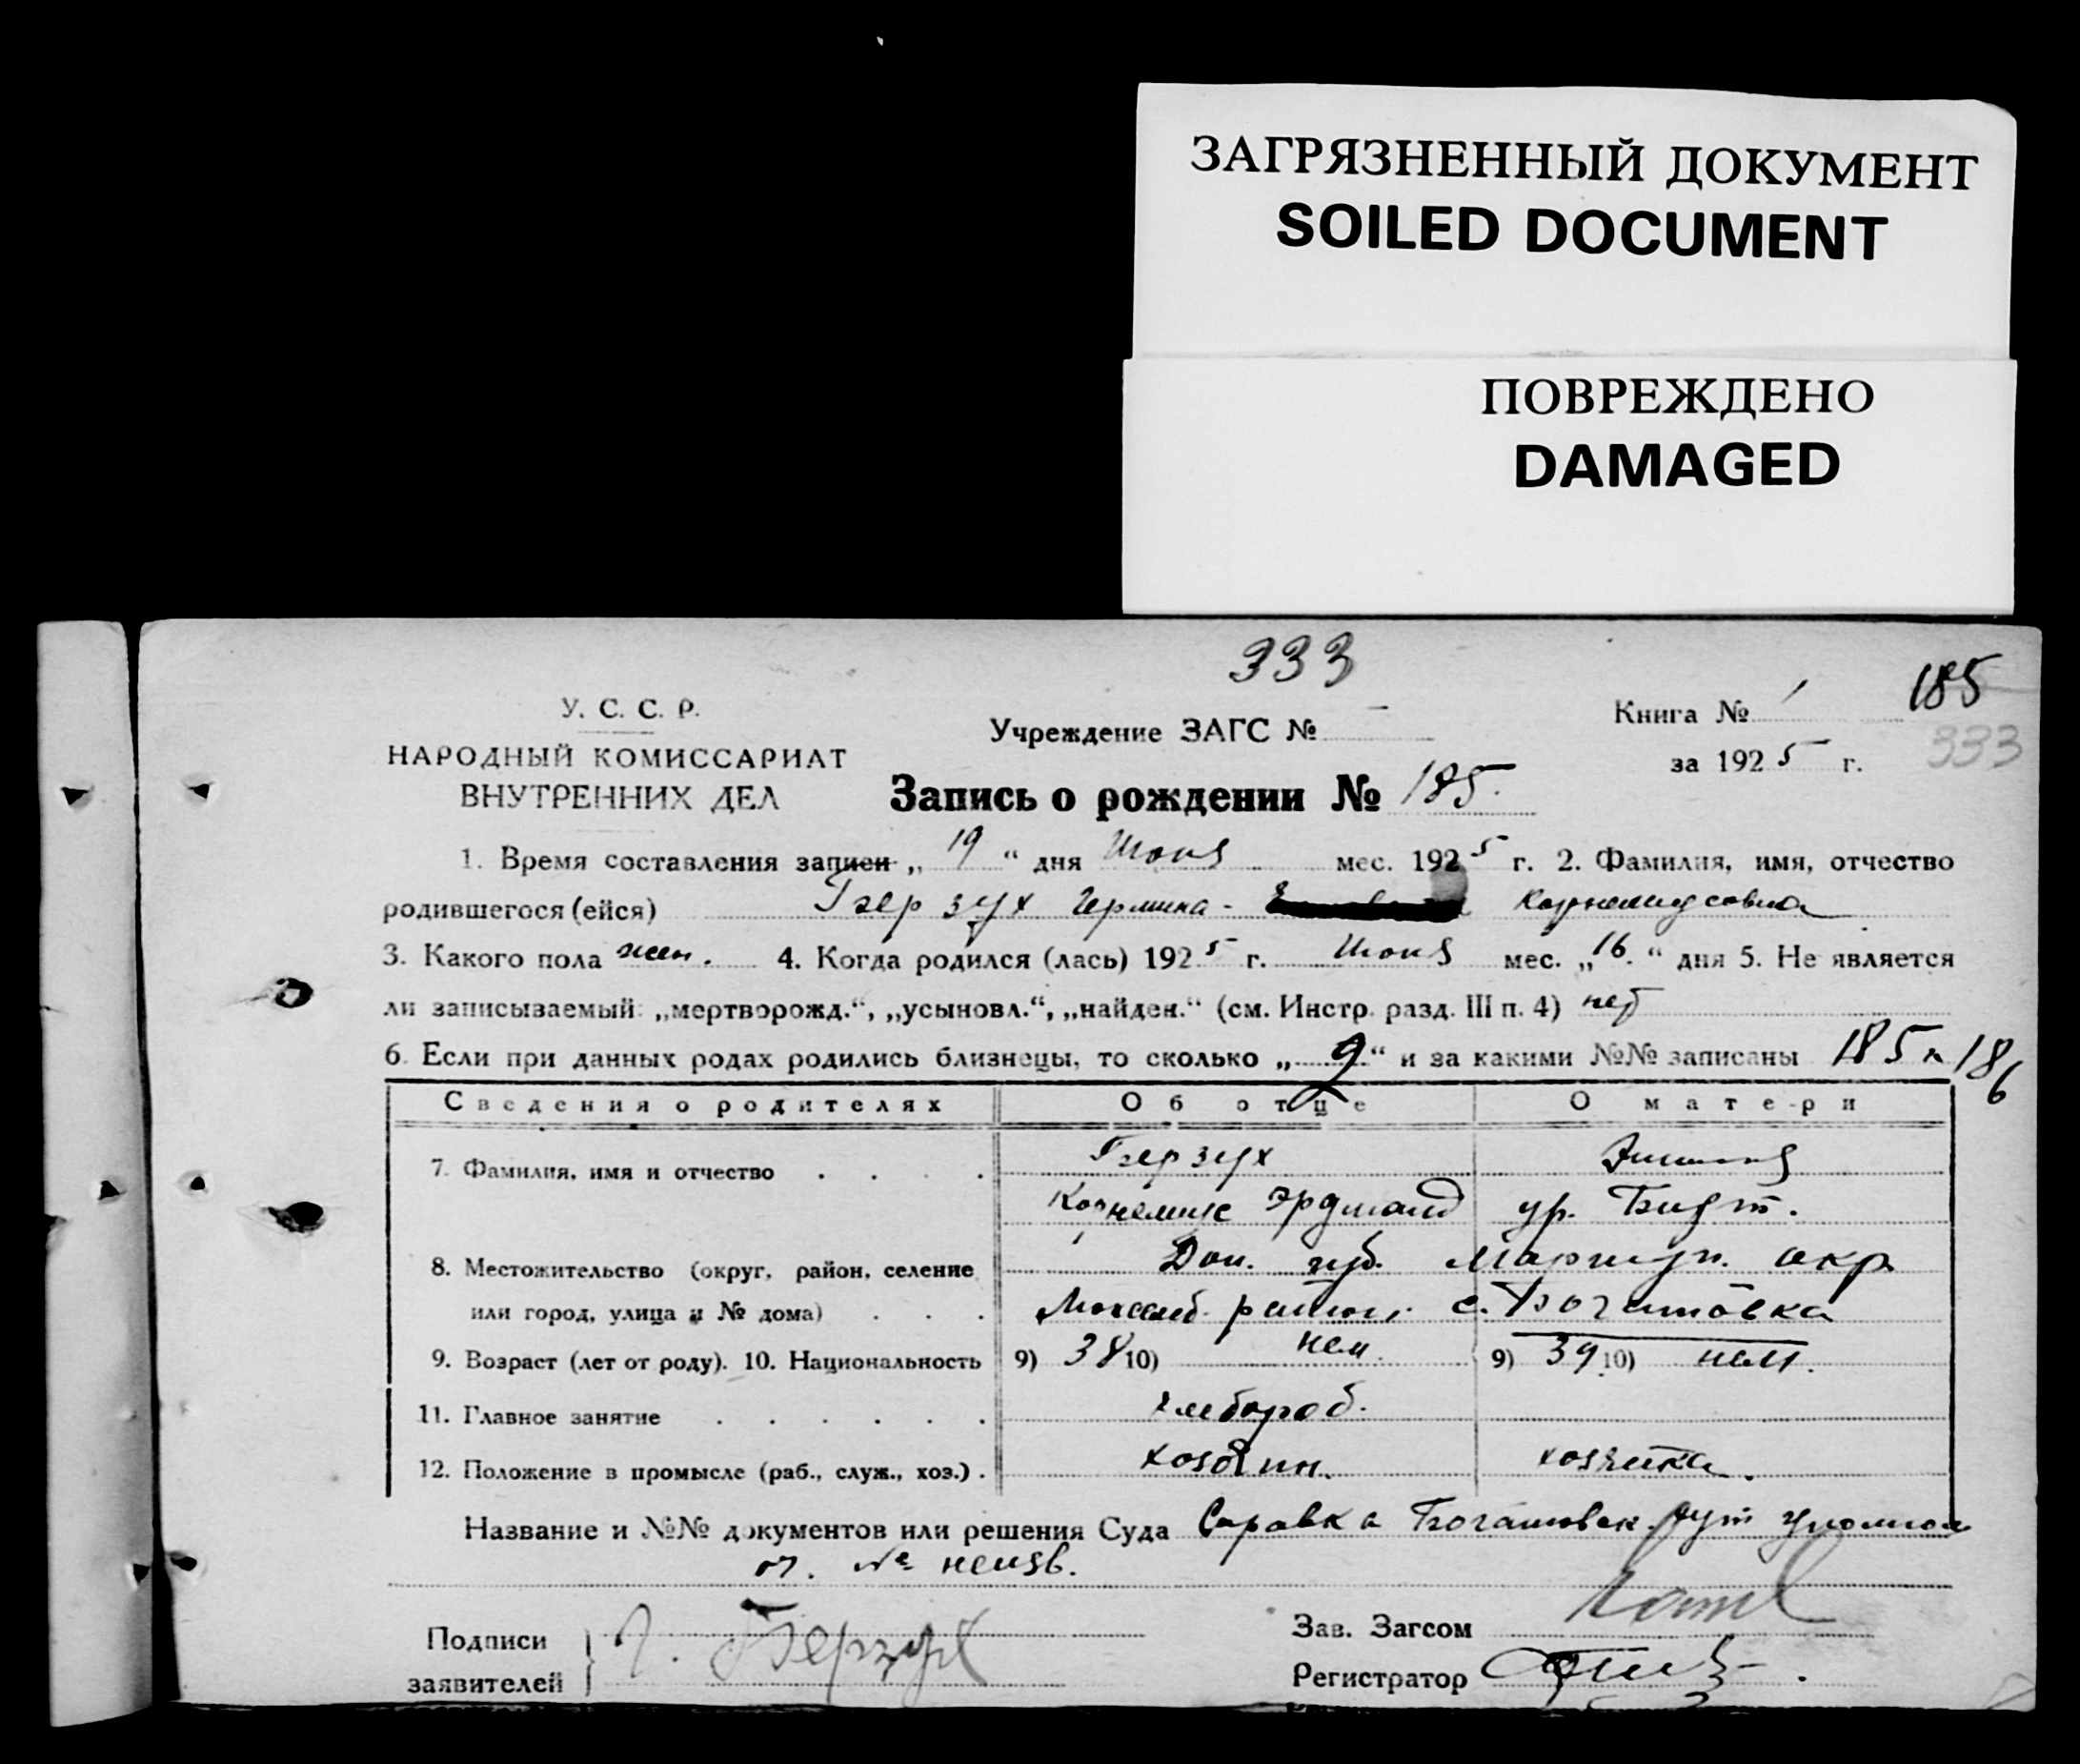 ЗАГРЯЗНЕННЫЙ ДОКУМЕНТ
SOILED DOCUMENT
ПОВРЕЖДЕНО
DAMAGED
333
185
333
У. С. С. Р.
НАРОДНЫЙ КОМИССАРИАТ
ВНУТРЕННИХ ДЕЛ
Учреждение ЗАГС № —
Книга № 1
за 1925 г.
Запись о рождении № 185.
1. Время составления записи „ 19 “ дня Июня мес. 1925 г. 2. Фамилия, имя, отчество
родившегося (ейся) Гермина - Корнелиусовна
3. Какого пола жен. 4. Когда родился (лась) 1925 г. Июня мес. „ 16. “ дня 5. Не является
ли записываемый: „мертворожд.“, „усыновл.“, „найден.“ (см. Инстр. разд. III п. 4) нет
6. Если при данных родах родились близнецы, то сколько „ 2 “ и за какими №№ записаны 185 и 186
Сведения о родителях Об отце О матери
7. Фамилия, имя и отчество
Корнелиус Эрдманд ур.
8. Местожительство (округ, район, селение Дон. губ. Мариуп. окр.
или город, улица и № дома) район с.
9. Возраст (лет от роду). 10. Национальность 9) 38 10) нем. 9) 39 10) нем.
11. Главное занятие хлебороб.
12. Положение в промысле (раб., служ., хоз.) . хозяин. хозяйка.
Название и №№ документов или решения Суда Справка
от. № неизв.
Подписи
заявителей
Зав. Загсом
Регистратор